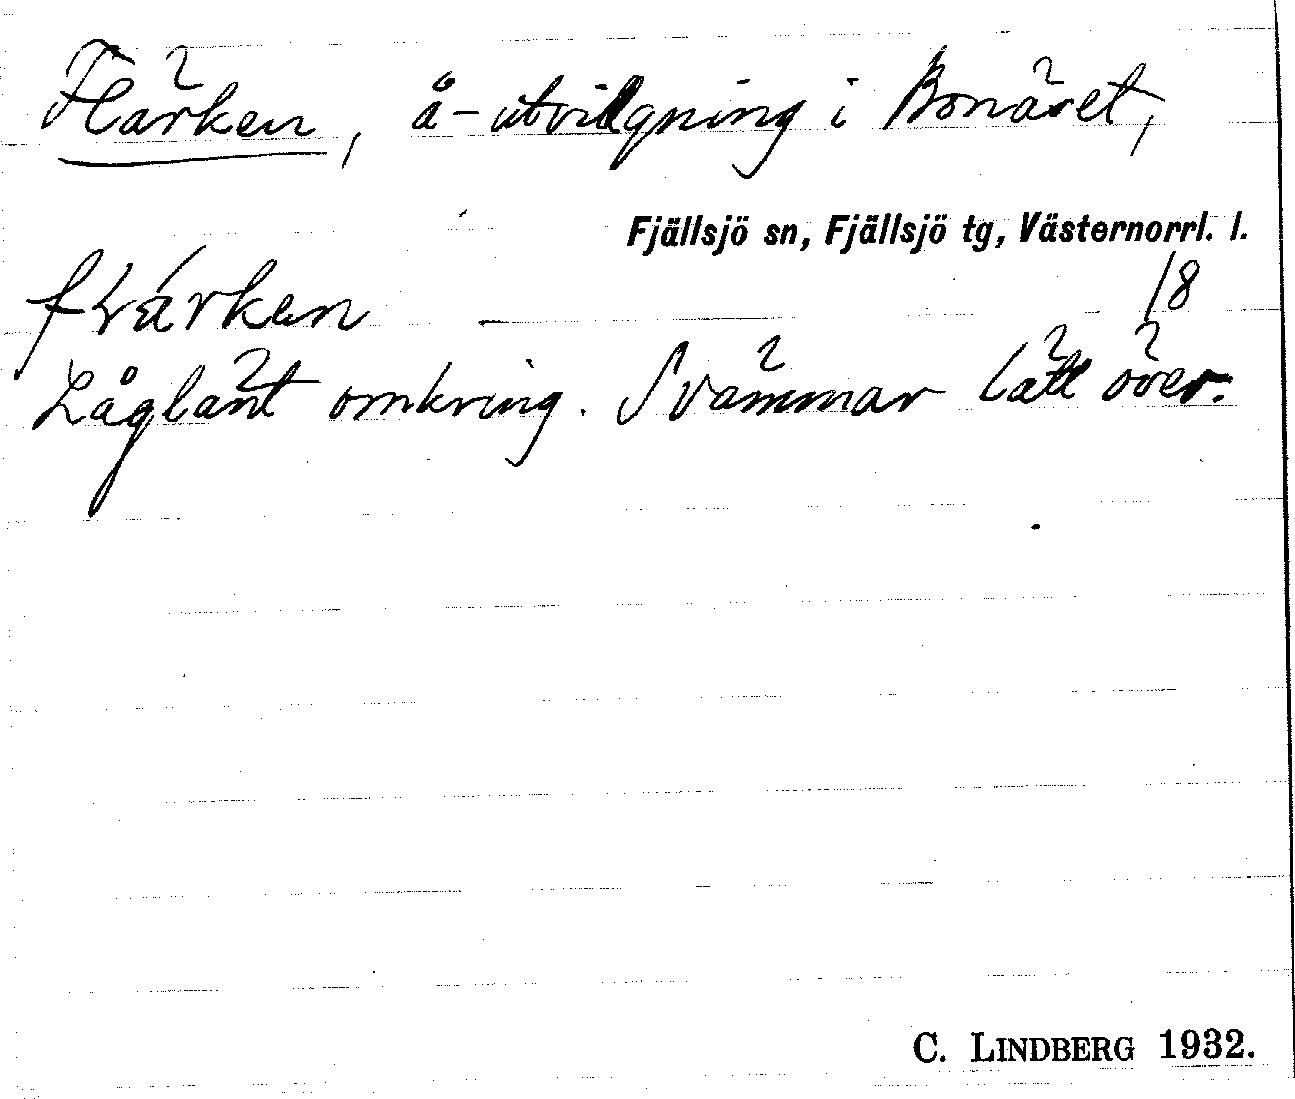 Flärken, å-utvidgning i Bonäset,
Fjällsjö sn, Fjällsjö tg, Västernorrl. l.
18
Låglänt omkring. Svämmar lätt över.
C. LINDBERG 1932.